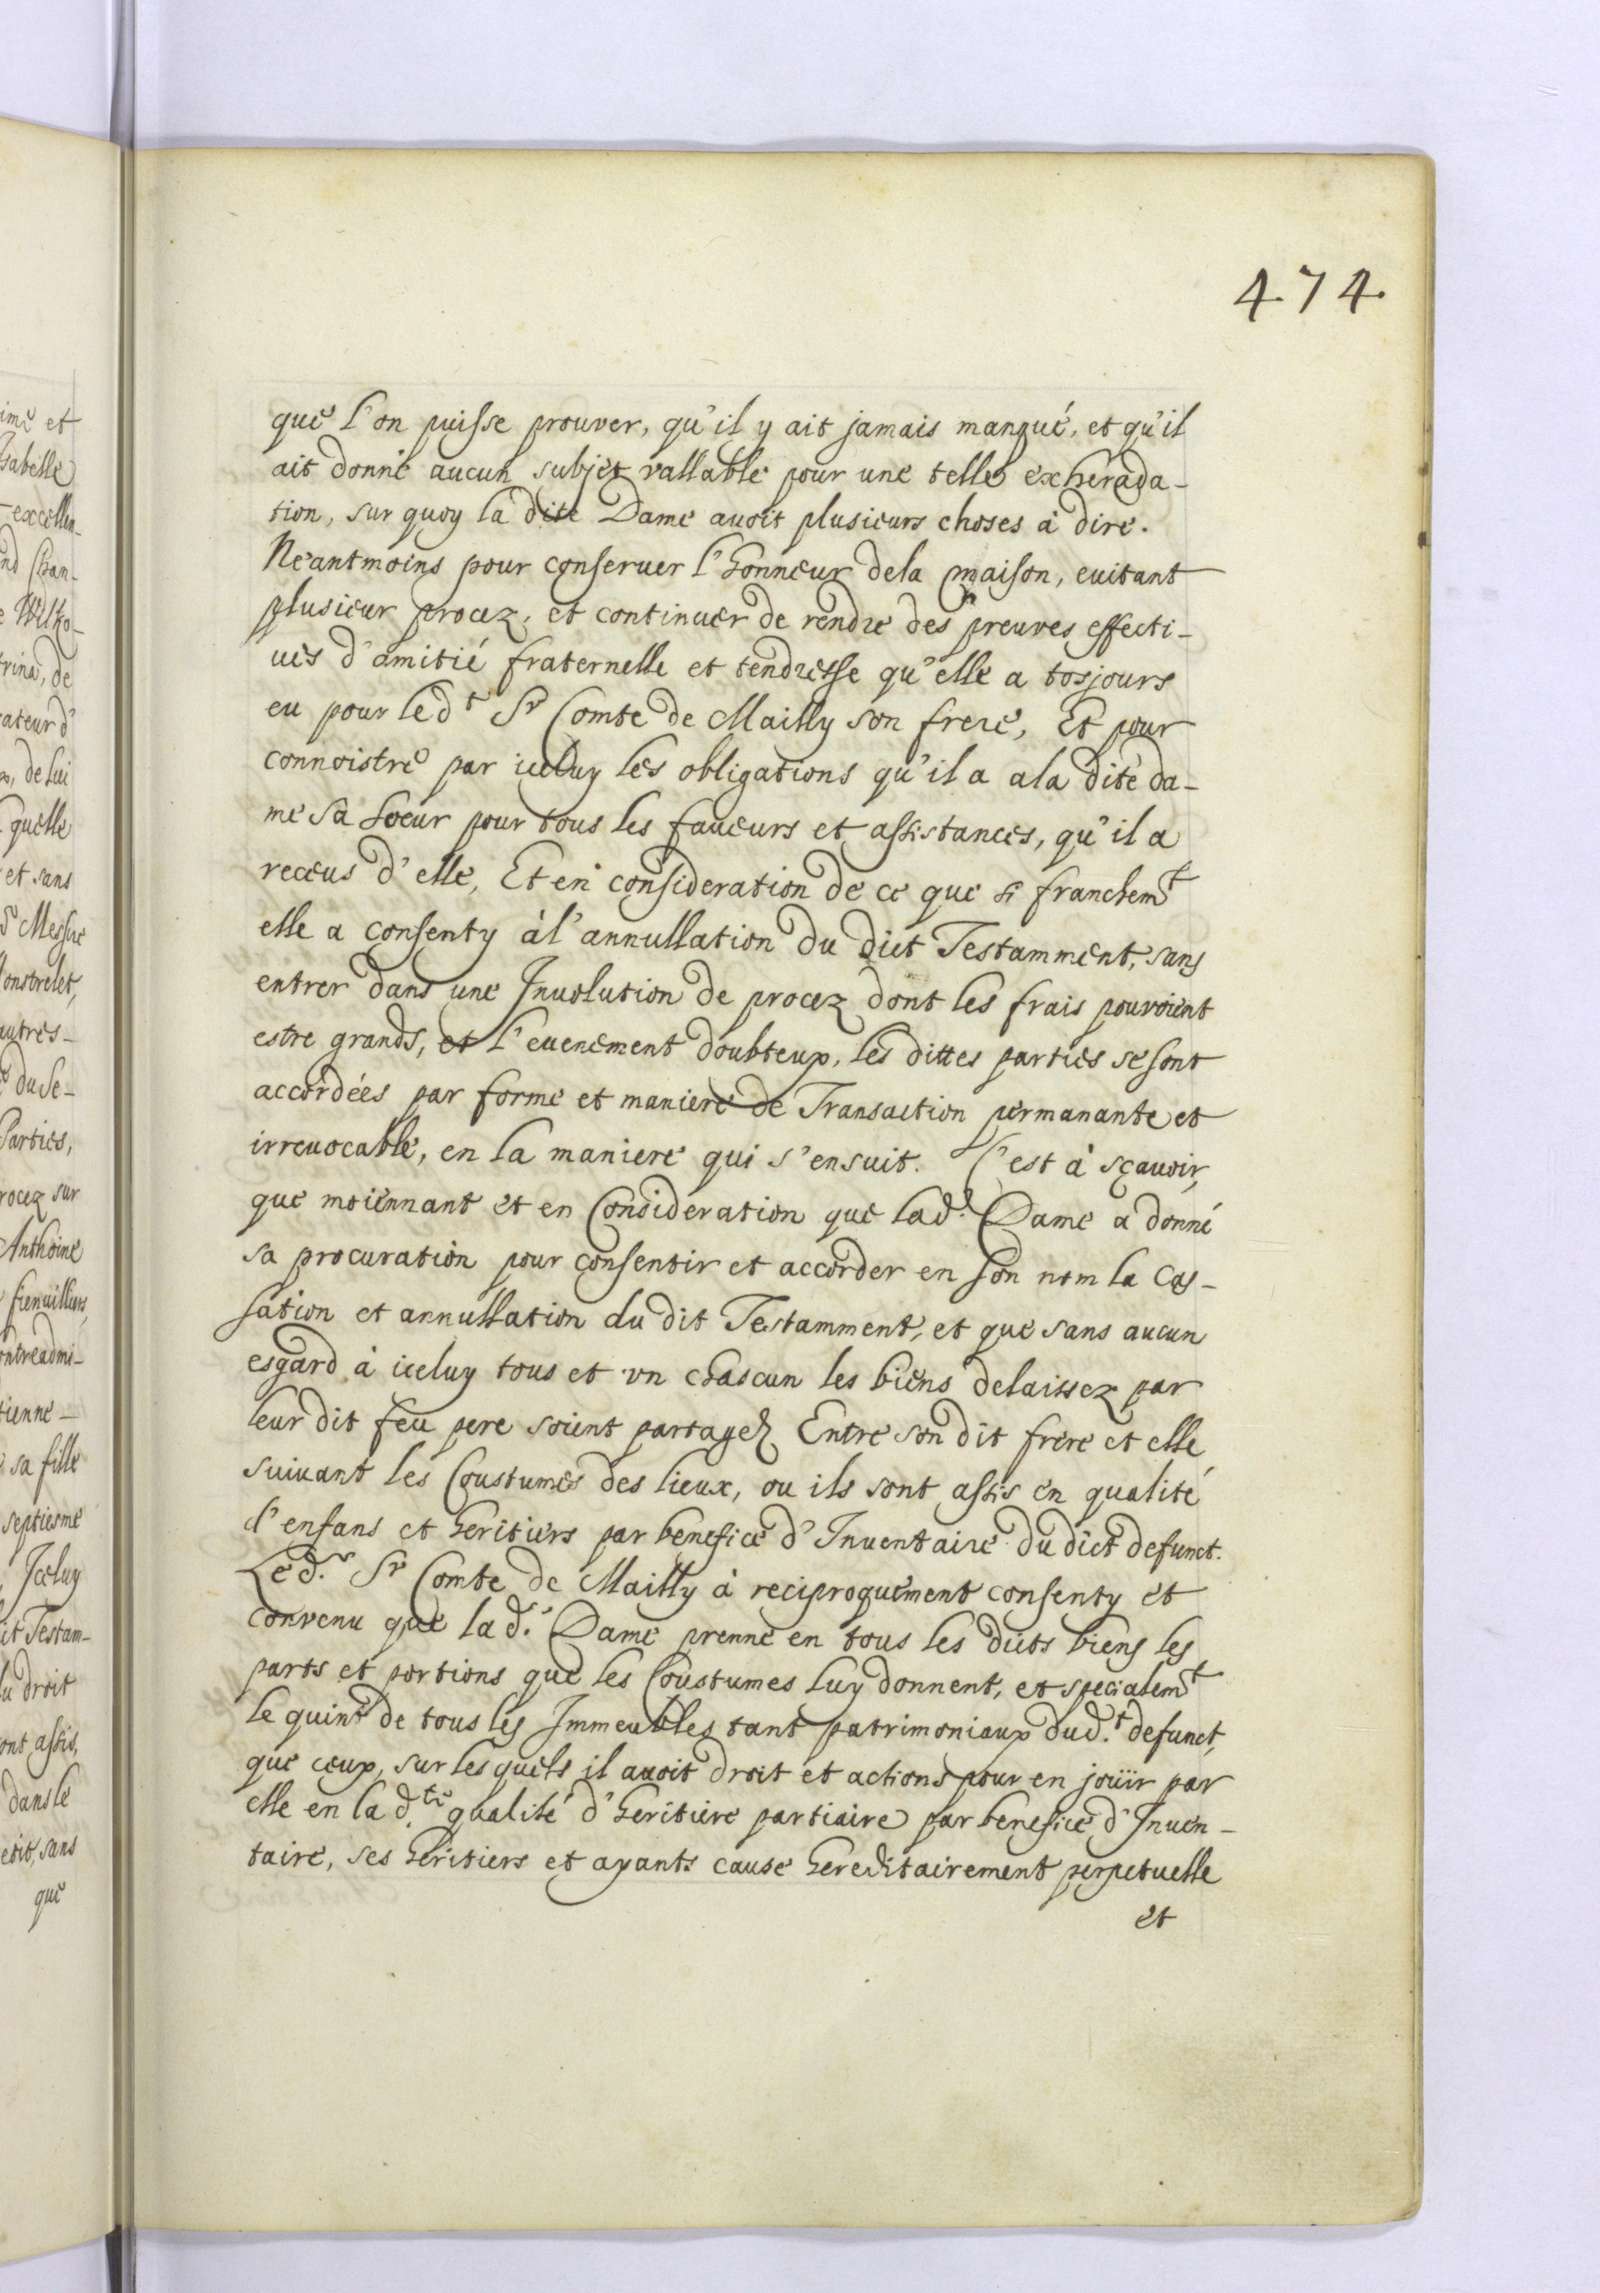 474.
que l'on puisse prouver, qu'il y ait jamais manqué, et qu'il
ait donné aucun subjet vallable pour une telle exhereda-
tion, sur quoy la dite Dame avoit plusieurs choses à dire.
Neantmoins pour conseruer l'honneur dela maison, euitant
plusieur procez, et continuer de rendre des preuves effecti-
ues d'amitié fraternelle et tendresse qu'elle a tosjours
eu pour le dt Sr Comte de Mailly son frere, Et pour
connoistre par iceluy les obligations qu'il a ala dite da-
me sa soeur pour tous les faueurs et assistances, qu'il a
receus d'elle, Et en consideration de ce que si franchemt
elle a consenty àl'annullation du dict Testamment, sans
entrer dans une Inuolution de procez dont les frais pouvoient
estre grands, et l'euenement doubteux, les dittes parties se sont
accordées par forme et maniere de Transaction permanante et
irreuocable, en la maniere qui s'ensuit. C'est à sçauoir,
que moiennant et en Consideration que lad.e Dame a donné
sa procuration pour consentir et accorder en son nom la Cas-
sation et annullation du dit Testamment, et que sans aucun
esgard à iceluy tous et vn chascun les biens delaissez par
leur dit feu pere soient partagez Entre son dit frere et elle
suiuant les Coustumes des lieux, ou ils sont assis en qualité
d'enfans et heritiers par benefice d'Inuentaire du dict defunct.
Le d.t Sr Comte de Mailly à reciproquement consenty et
convenu que la d.e Dame prenne en tous les dicts biens les
parts et portions que les Coustumes luy donnent, et specialemt
le quint de tous les Immeubles tant patrimoniaux dud.t defunct,
que ceux, sur lesquels il avoit droit et actions pour en joüir par
elle en la d.te qualité d'heritiere partiaire par benefice d'Inuen-
taire, ses heritiers et ayants cause hereditairement perpetuelle
et